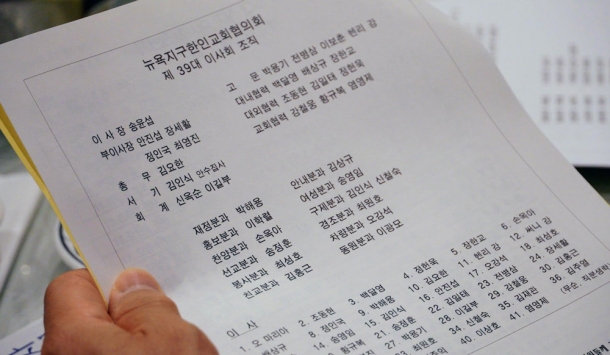 뉴욕지구한인교회협의회
제 39대 이사회 조직
이 사 장 송윤섭
부이사장 안진섭 장세활
정인국 최영진
총 무 김요한
서 기 김인식 안수집사
회 계 신옥순 이길부
고 문 박용기 전병삼 이보춘 현리 김
대내협력 백달영 배상규 장한교
대외협력 조동현 김일태 장현욱
교회협력 김철웅 황규복 염영제
재정분과 박해용
홍보분과 이학철
찬양분과 손옥아
선교분과 송정훈
봉사분과 최성호
친교분과 김홍근
안내분과 김상규
여성분과 송영임
구제분과 김인식 신철숙
경조분과 최원호
차량분과 오강석
동원분과 이광모
이 사
1. 오 마리아 2. 조동현 3. 백달영 4. 장현욱 5. 장한교 6. 손옥아
배상규 8. 정인국 9. 박해용 10. 김요한 11. 현리 김 12. 써니 김
14. 송영임 15. 김인식 16. 안진섭 17. 오강석 18. 최성호
황규복 21. 송정훈 22. 김일태 23. 전병삼 24. 장세활
27. 박용기 28. 이길부 29. 김철웅 30. 김홍근
33. 최원호 34. 신철숙 35. 김재관 36. 김주열
40. 이상호 41. 염영제 (무순,